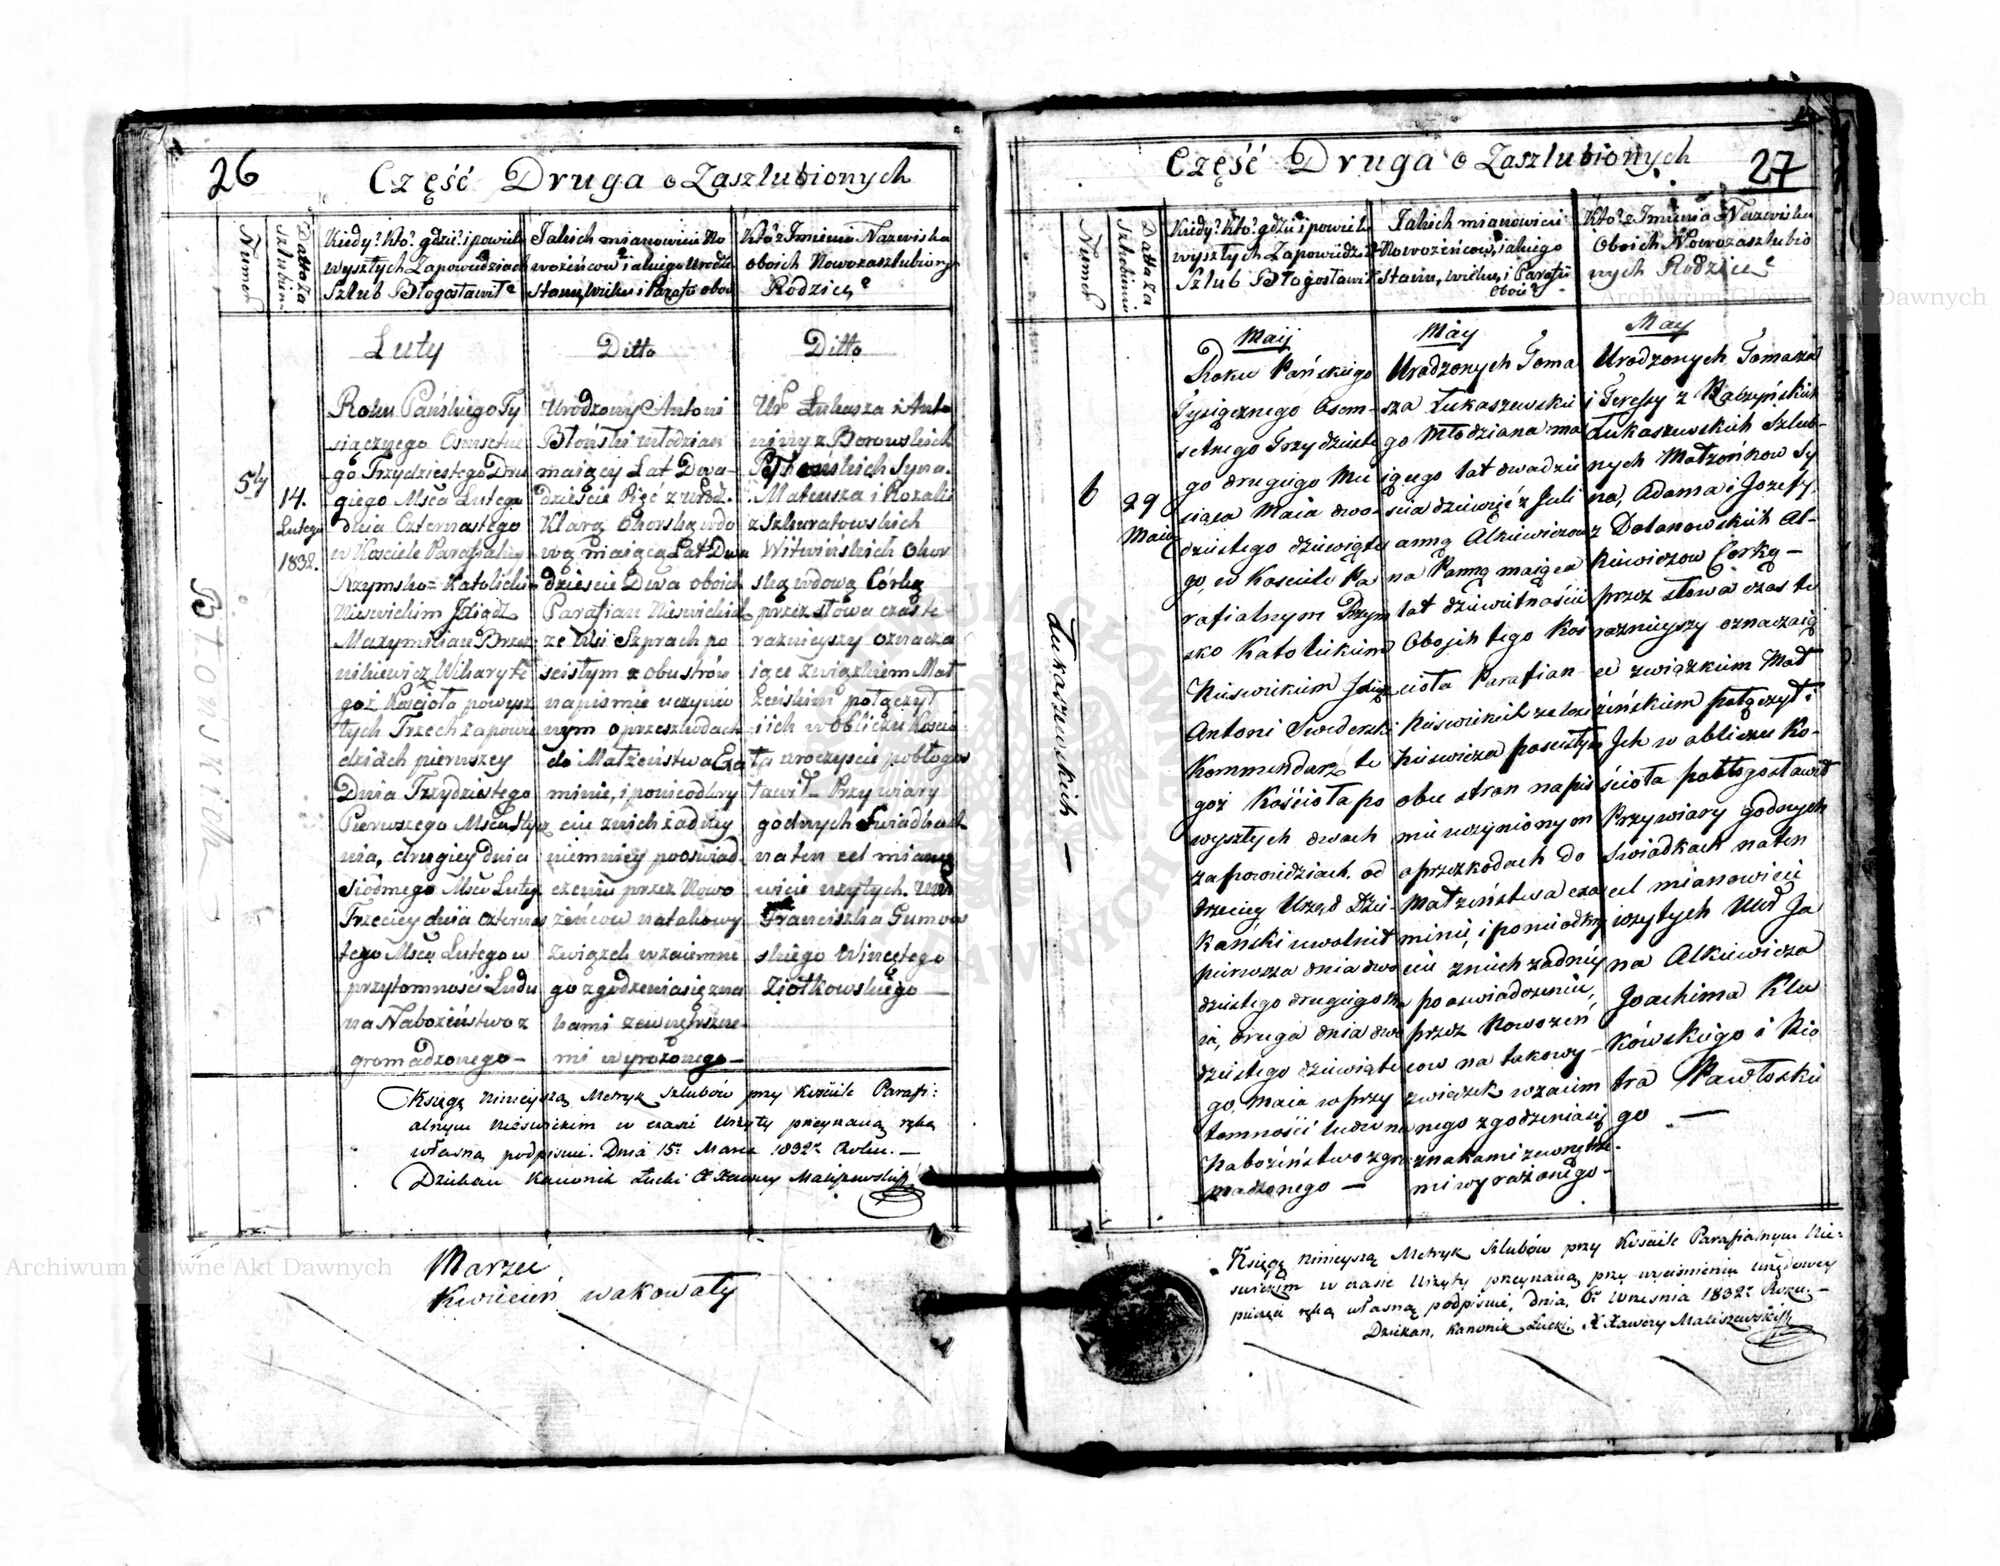 26
Część Druga o Zaszlubionych
Numer
Datta Za
szlubin.
Kiedy? Kto? gdzie? i po wielu
wyszłych Zapowiedziach
Szlub Błogosławił?
Jakich mianowicie No
wożeńców i jakiego Urodze
Stanu, Wieku i Parafii obow
Kto? z Imienia Nazwiska
oboich Nowozaszlubiony
Rodzice?
Luty
Ditto
Ditto
5ty
14.
Lutego
1832.
Błonskich
Roku Pańskiego Ty
siącznego Osmsetne
go Trzydziestego Dru
giego Msca Lutego
dnia Czternastego
w Kosciele Parafialnym
Rzymsko=Katolickim
Nieswieskim Jksiądz
Maxymilian Brzez
niekiewicz Wikary te
goż Kościoła powysz
łych Trzech zapowie
dziach pierwszey
Dnia Trzydziestego
Pierwszego Msca Stycz
nia, drugiey dnia
Siódmego Msca Lutego
Trzeciey dnia czternas
tego Msca Lutego w
przytomności Ludu
na Nabożeństwo z
gromadzonego –
Urodzony Antoni
Błoński młodzian
maiący Lat Dwa-
dzieście Pięć z urod.
Klarą Chorską wdo
wą maiącą Lat Dwa
dzieście Dwa oboich
Parafian Nieswieskich
ze Wsi Szprach po
scisłym z obu strón
na piśmie uczynio
nym o przeszkodach
do Małżeństwa Exa
minie, i ponieodkry
ciu znich żadney
niemniey poswiad
czeniu przez Nowo
żeńców natakowy
związek wzaiemne
go zgodzenia się zna
kami zewnętrzne-
mi wyrażonego –
Ur Łukasza i Anto
niny z Borowskich
Błońskich Syna.
Mateusza i Rozalii
z Szkuratowskich
Witwińskich Chor
ską wdową Córką
przez słowa czas te
raznieyszy oznacza
iące związkiem Mał
żeńskim połączył
i ich w Obliczu Koscio
ła uroczyscie pobłogos
ławił – Przy wiary
godnych Świadkach
na ten cel miano
wicie użytych. Urr
Franciszka Gumow
skiego Wincętego
Ziołkowskiego
Księgę ninieyszą Metryk Szlubów przy Kościele Parafi:
alnym Nieświeżkim w czasie Wizyty przeyrzaną ręką
własną podpisuię. Dnia 15. Marca 1832 Roku. –
Dziekan Kanonik Łucki X Xawery Maliszewski
Marzec
Kwiecień wakowały
27
Część Druga o Zaszlubionych
Numer
Datta Za
szlubin
Kiedy? Kto? gdzie i po wielu
wyszłych Zapowiedziach
Szlub Błogosławił
Jakich mianowicie
Nowożeńców, i jakiego
Stanu, Wieku, i Parafii
oboie?
Kto? z Imienia Nazwiska
Oboich Nowozaszlubio
nych Rodzice?
Maij
May
May
6
29
Maia
Łukaszewskich –
Roku Pańskiego
Tysiącznego Osm-
setnego Trzydzieste
go drugiego Mie
siąca Maia dwo-
dziestego dziewiąte
go, w Kosciele Pa
rafialnym Rzym
sko Katolickim
Nieswieskim Jksiądz
Antoni Swiderski
Kommendarz te
goż Kościoła po
wyszłych dwóch
zapowiedziach. od
trzeciey Urząd Dzie-
kański uwolnił
pierwsza dnia dwo
dziestego drugiego Ma
ia, druga dnia dwo
dziestego dziewiąte
go Maia w przy
tomności ludu na
Nabożeństwo zgro
madzonego –
Urodzonych Toma
sza Łukaszewskie
go Młodziana ma
iącego lat dwadzie
scia dziewięć z Juli
anną Alkiewiczow
na Panną maiącą
lat dziewiętnaście
Oboich tego Koś
cioła Parafian
Nieswieskich
po scisłym
obu stron na pis
mie uczynionym
o przeszkodach do
Małżeństwa exa
minie, i ponieodkry
ciu znich żadney
po oswiadczeniu,
przez Nowożeń
cow na takowy
związek wzaiem
nego zgodzenia się
znakami zewnętrzne
mi wyrażonego –
Urodzonych Tomasza
i Teressy z Raczyńskich
Łukaszewskich Szlub-
nych Małżonkow Sy
na, Adama i Jozefy
z Dolanowskich Al-
kiewiczow Corką –
przez słowa czas te
raznieyszy oznaczaią
ce związkiem Mał
żeńskim połączył i
Ich w obliczu Ko-
ścioła pobłogosławił
Przy wiary godnych
Swiadkach na ten
cel mianowicie
użytych Urr Ja
na Alkiewicza
Joachima Klu
kowskiego i Pio
tra Pawłoskie
go –
Księgę ninieyszą Metryk Szlubów przy Kościele Parafialnym Nie:
świeżkim w czasie Wizyty przeyrzaną przy wyciśnieniu urzędowey
pieczęci ręką własną podpisuię, Dnia 6. Września 1832 Roku. –
Dziekan, Kanonik Łucki, X Xawery Maliszewski
Archiwum Główne Akt Dawnych
Archiwum Główne Akt Dawnych